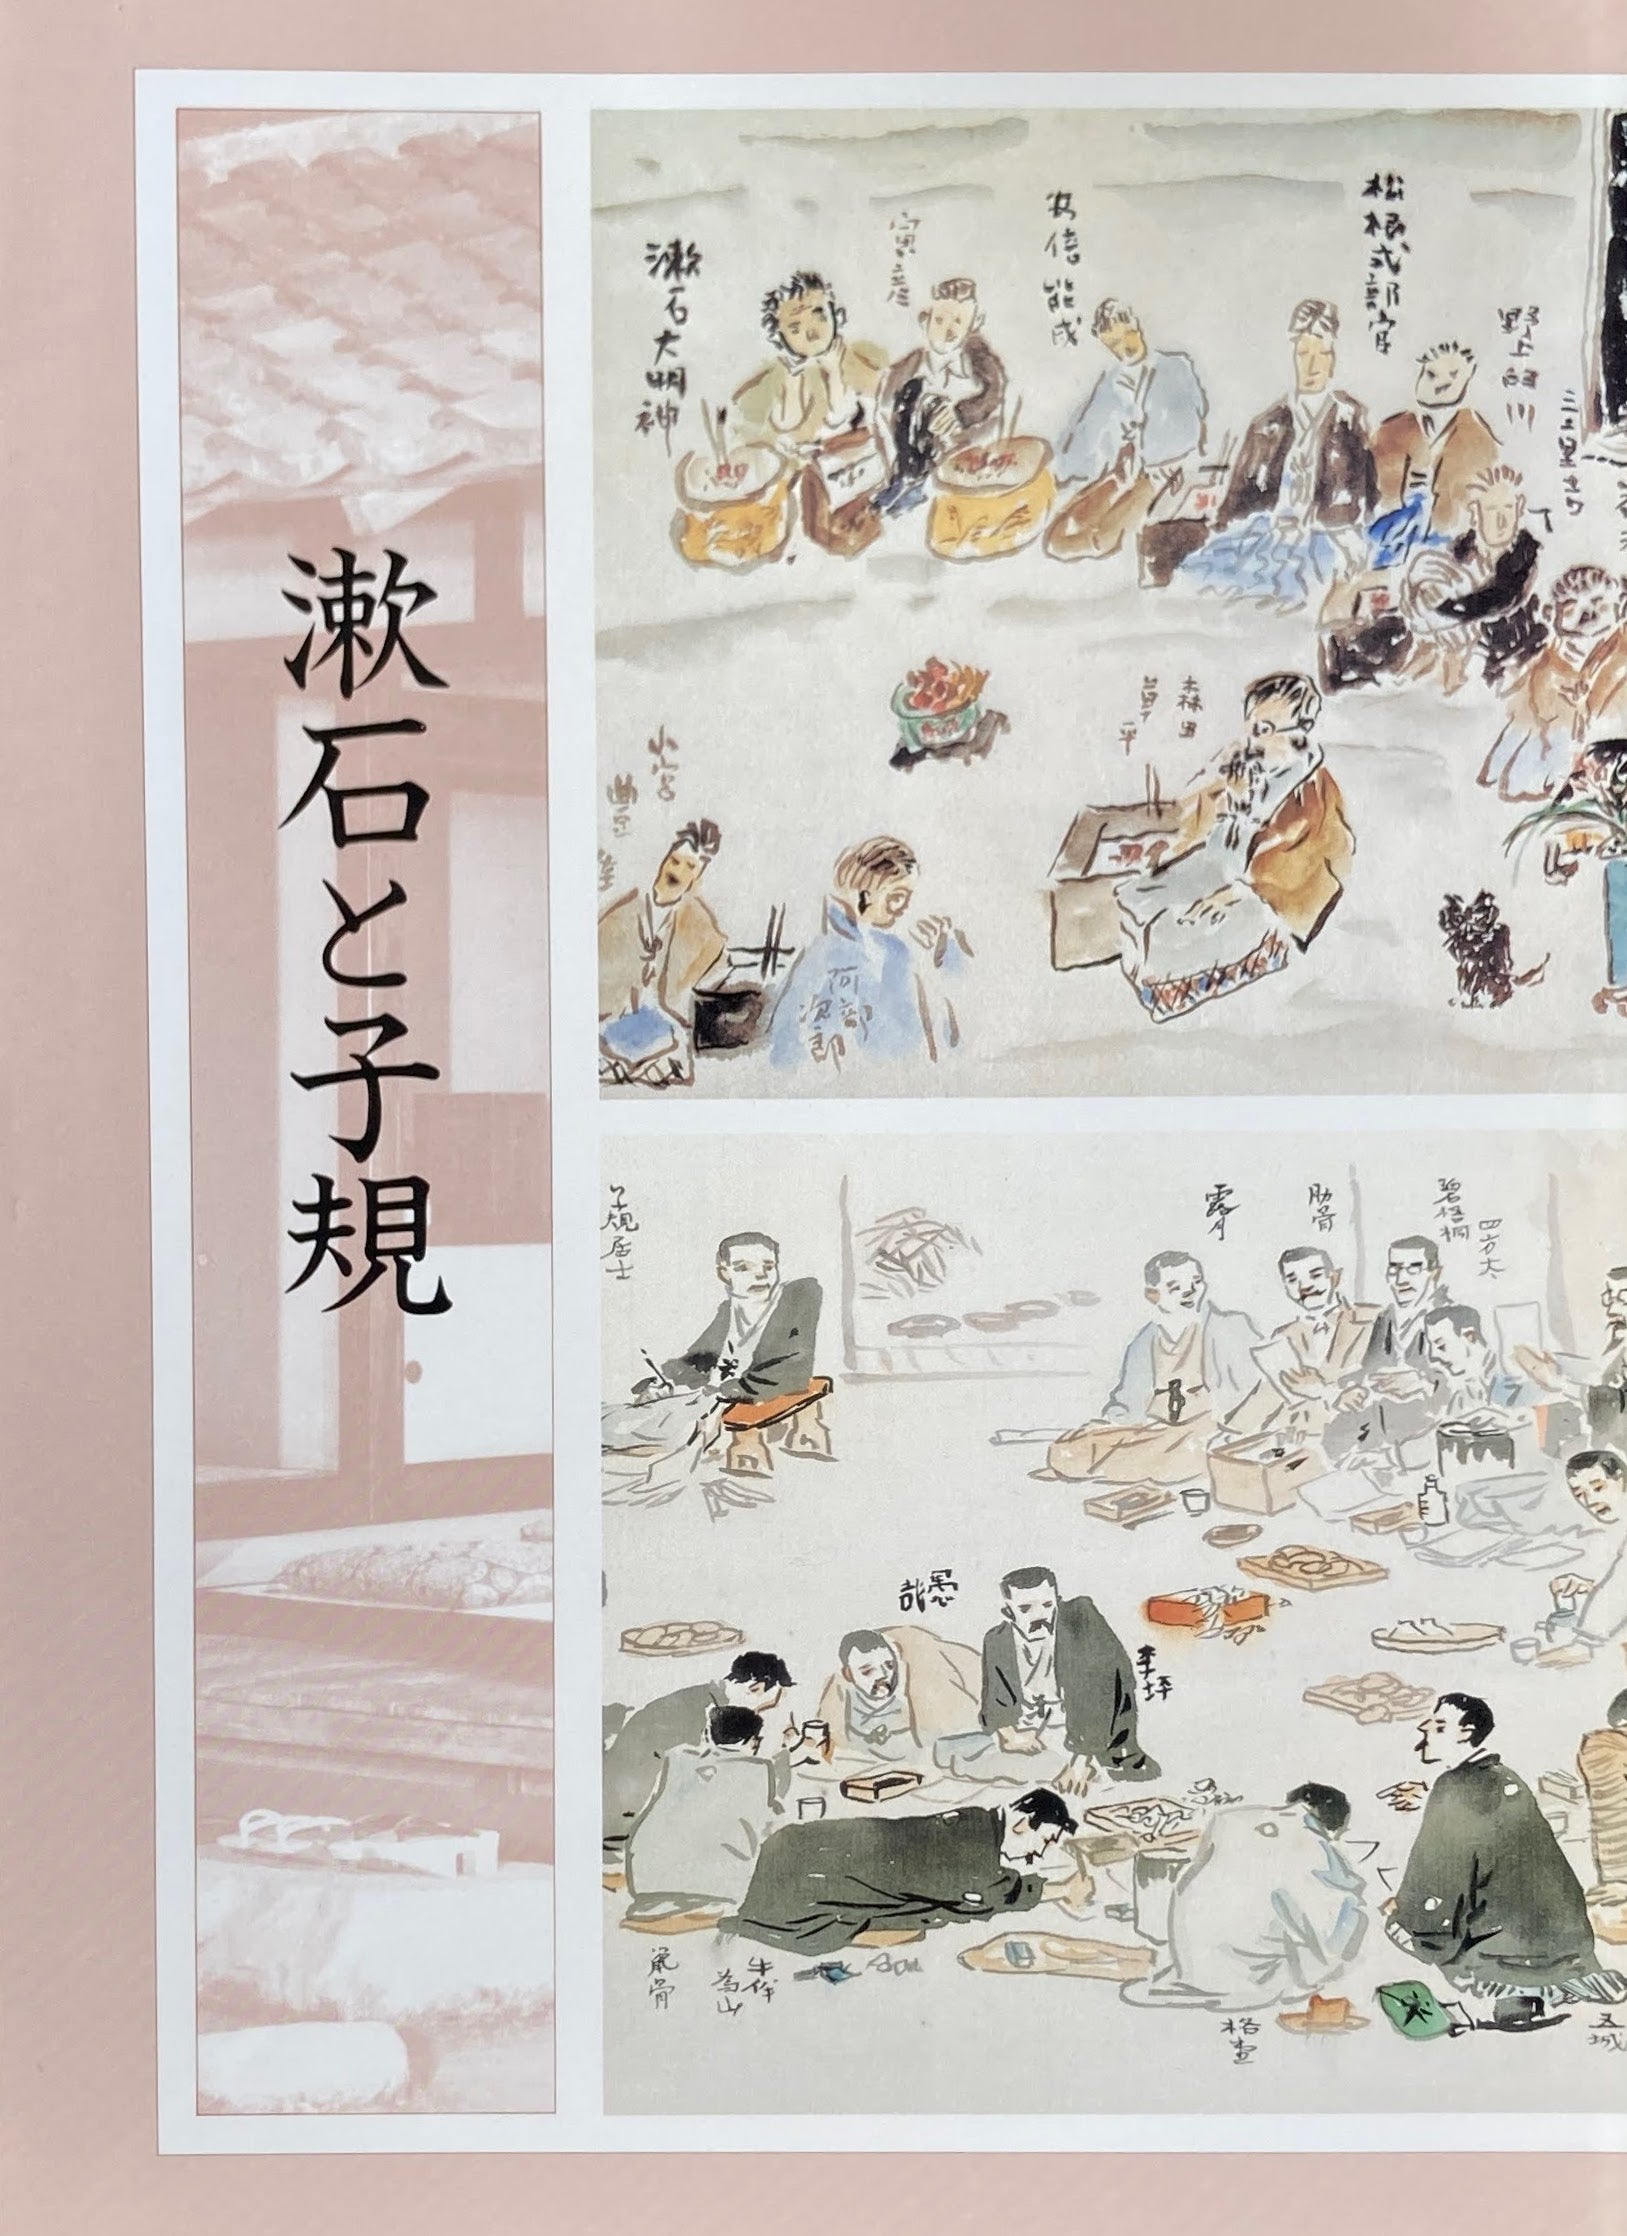 漱石と子規
漱石大明神
寅彦
安倍能成
松根式部官
野上臼川
三重吉
森田
草平
小宮
豊隆
阿部
次郎
子規居士
露月
肋骨
碧梧桐
四方太
愚
哉
牛伴
為山
鼠骨
格堂
五城